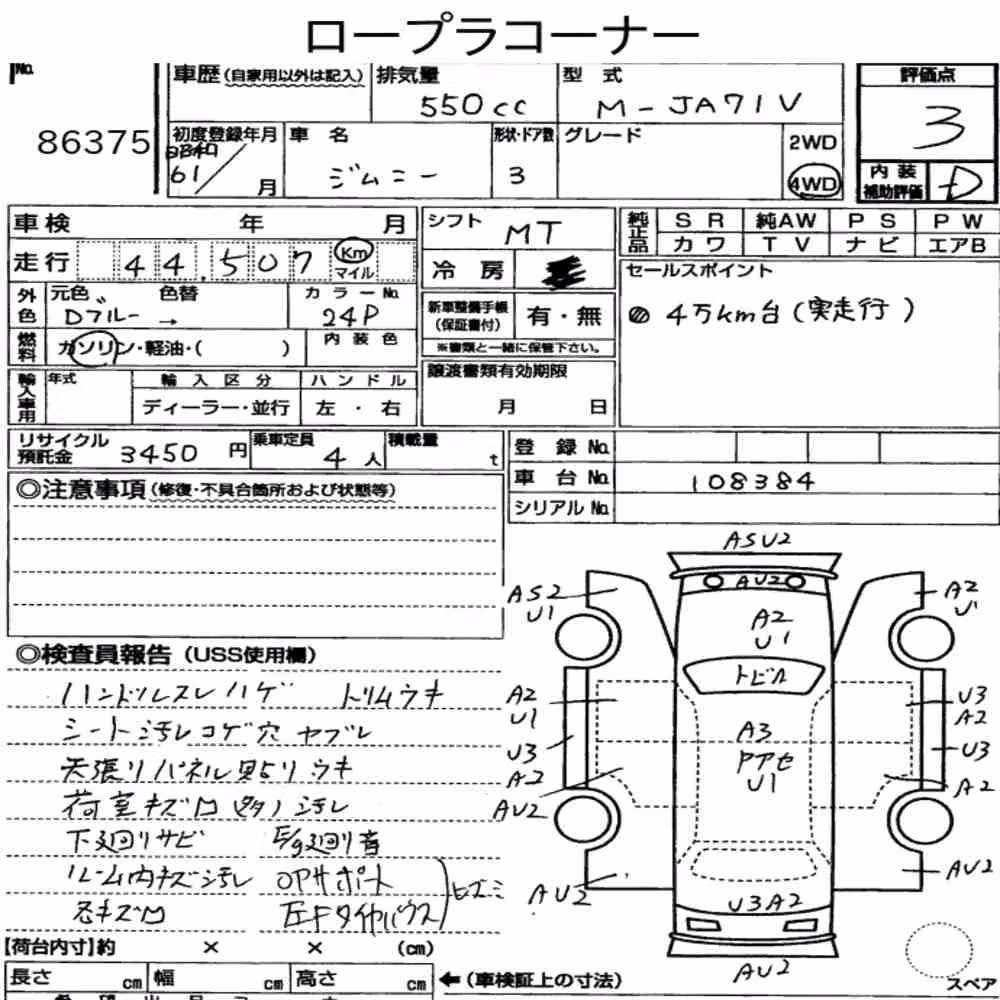 ロープラコーナー
No.
86375
車歴(自家用以外は記入)
排気量
550cc
型 式
M-JA71V
評価点
3
初度登録年月
昭和
61/ 月
車 名
ジムニー
形状・ドア数
3
グレード
2WD
4WD
内装
補助評価
D
車検 年 月
走行 44.507 Km
マイル
シフト MT
冷房
純正品
SR 純AW PS PW
カワ TV ナビ エアB
セールスポイント
4万km台(実走行)
外色
元色 色替
Dブルー →
カラーNo.
24P
燃料
ガソリン・軽油・( )
内装色
新車整備手帳
(保証書付)
有・無
※書類と一緒に保管下さい。
輸入車用
年式
輸入区分
ディーラー・並行
ハンドル
左・右
譲渡書類有効期限
月 日
リサイクル
預託金 3450 円
乗車定員
4人
積載量
t
登録No.
車台No. 108384
シリアルNo.
◎注意事項(修復・不具合箇所および状態等)
◎検査員報告(USS使用欄)
ハンドルスレハゲ トリムウキ
シート汚レコゲ穴ヤブレ
天張りパネル貼りウキ
荷室キズ凹(多)汚レ
下廻リサビ E/g廻リ音
ルーム内キズ汚レ OPサポート
左Fタイヤハウスヒズミ
ASU2
AU2
A2
U1
トビ凹
A3
アセ
U1
U3A2
AU2
AS2
U1
A2
U1
U3
A2
AU2
AU2
A2
U1
U3
A2
U3
A2
AU2
スペア
【荷台内寸】約 × × (cm)
長さ cm 幅 cm 高さ cm
←(車検証上の寸法)